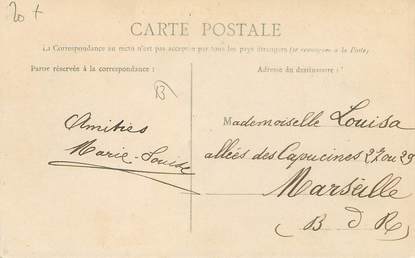 20 +
CARTE POSTALE
La Correspondance au recto n'est pas acceptée par tous les pays étrangers (se renseigner à la Poste)
Partie réservée à la correspondance :
Adresse du destinataire :
B
Amitiés
Marie-Louise
Mademoiselle Louisa
allées des Capucines 27 ou 29
Marseille
(B d R)